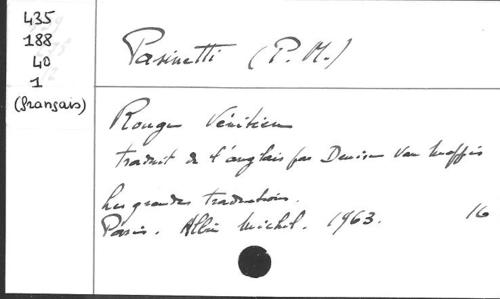 435
188
40
1
(français)
Pasinetti (P. M.)
Rouge Vénitien
traduit de l'anglais par Denise Van Moppès
Les grandes traductions.
Paris. Albin Michel. 1963. 16